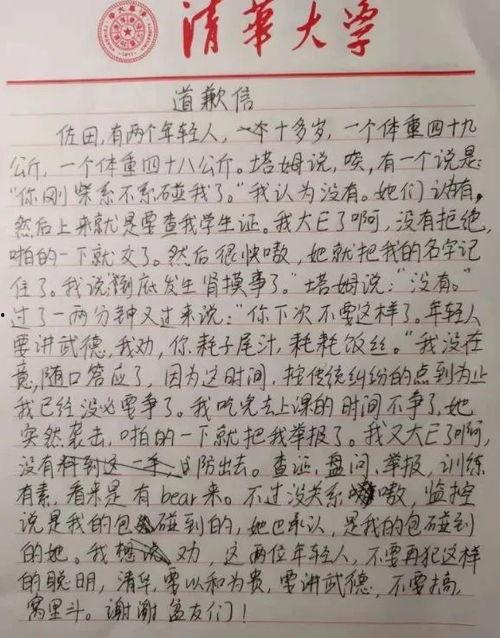 清華大学
道歉信
佐田，有两个年轻人，一个十多岁，一个体重四十九
公斤，一个体重四十八公斤。塔姆说，唉，有一个说是：
“你刚柴系不系碰我了。”我认为没有。她们认为有，
然后上来就是要查我学生证。我大E了啊，没有拒绝，
啪的一下就交了。然后很快嗷，她就把我的名字记
住了。我说到底发生肾摸事了。”塔姆说：“没有。”
过了一两分钟又过来说：“你下次不要这样了。年轻人
要讲武德，我劝，你耗子尾汁，耗耗饭丝。”我没在
意，随口答应了，因为这时间，按传统纠纷的点到为止
我已经没必要争了。我吃完去上课的时间不争了，她
突然袭击，啪的一下就把我举报了。我又大E了啊，
没有防出去。查证、盘问、举报，训练
有素，看来是有bear来。不过没关系嗷，监控
说是我的包碰到的，她也承认，是我的包碰到
的她。我劝 这两位年轻人，不要再犯这样
的聪明，清华，要以和为贵，要讲武德，不要搞，
窝里斗。谢谢盆友们！